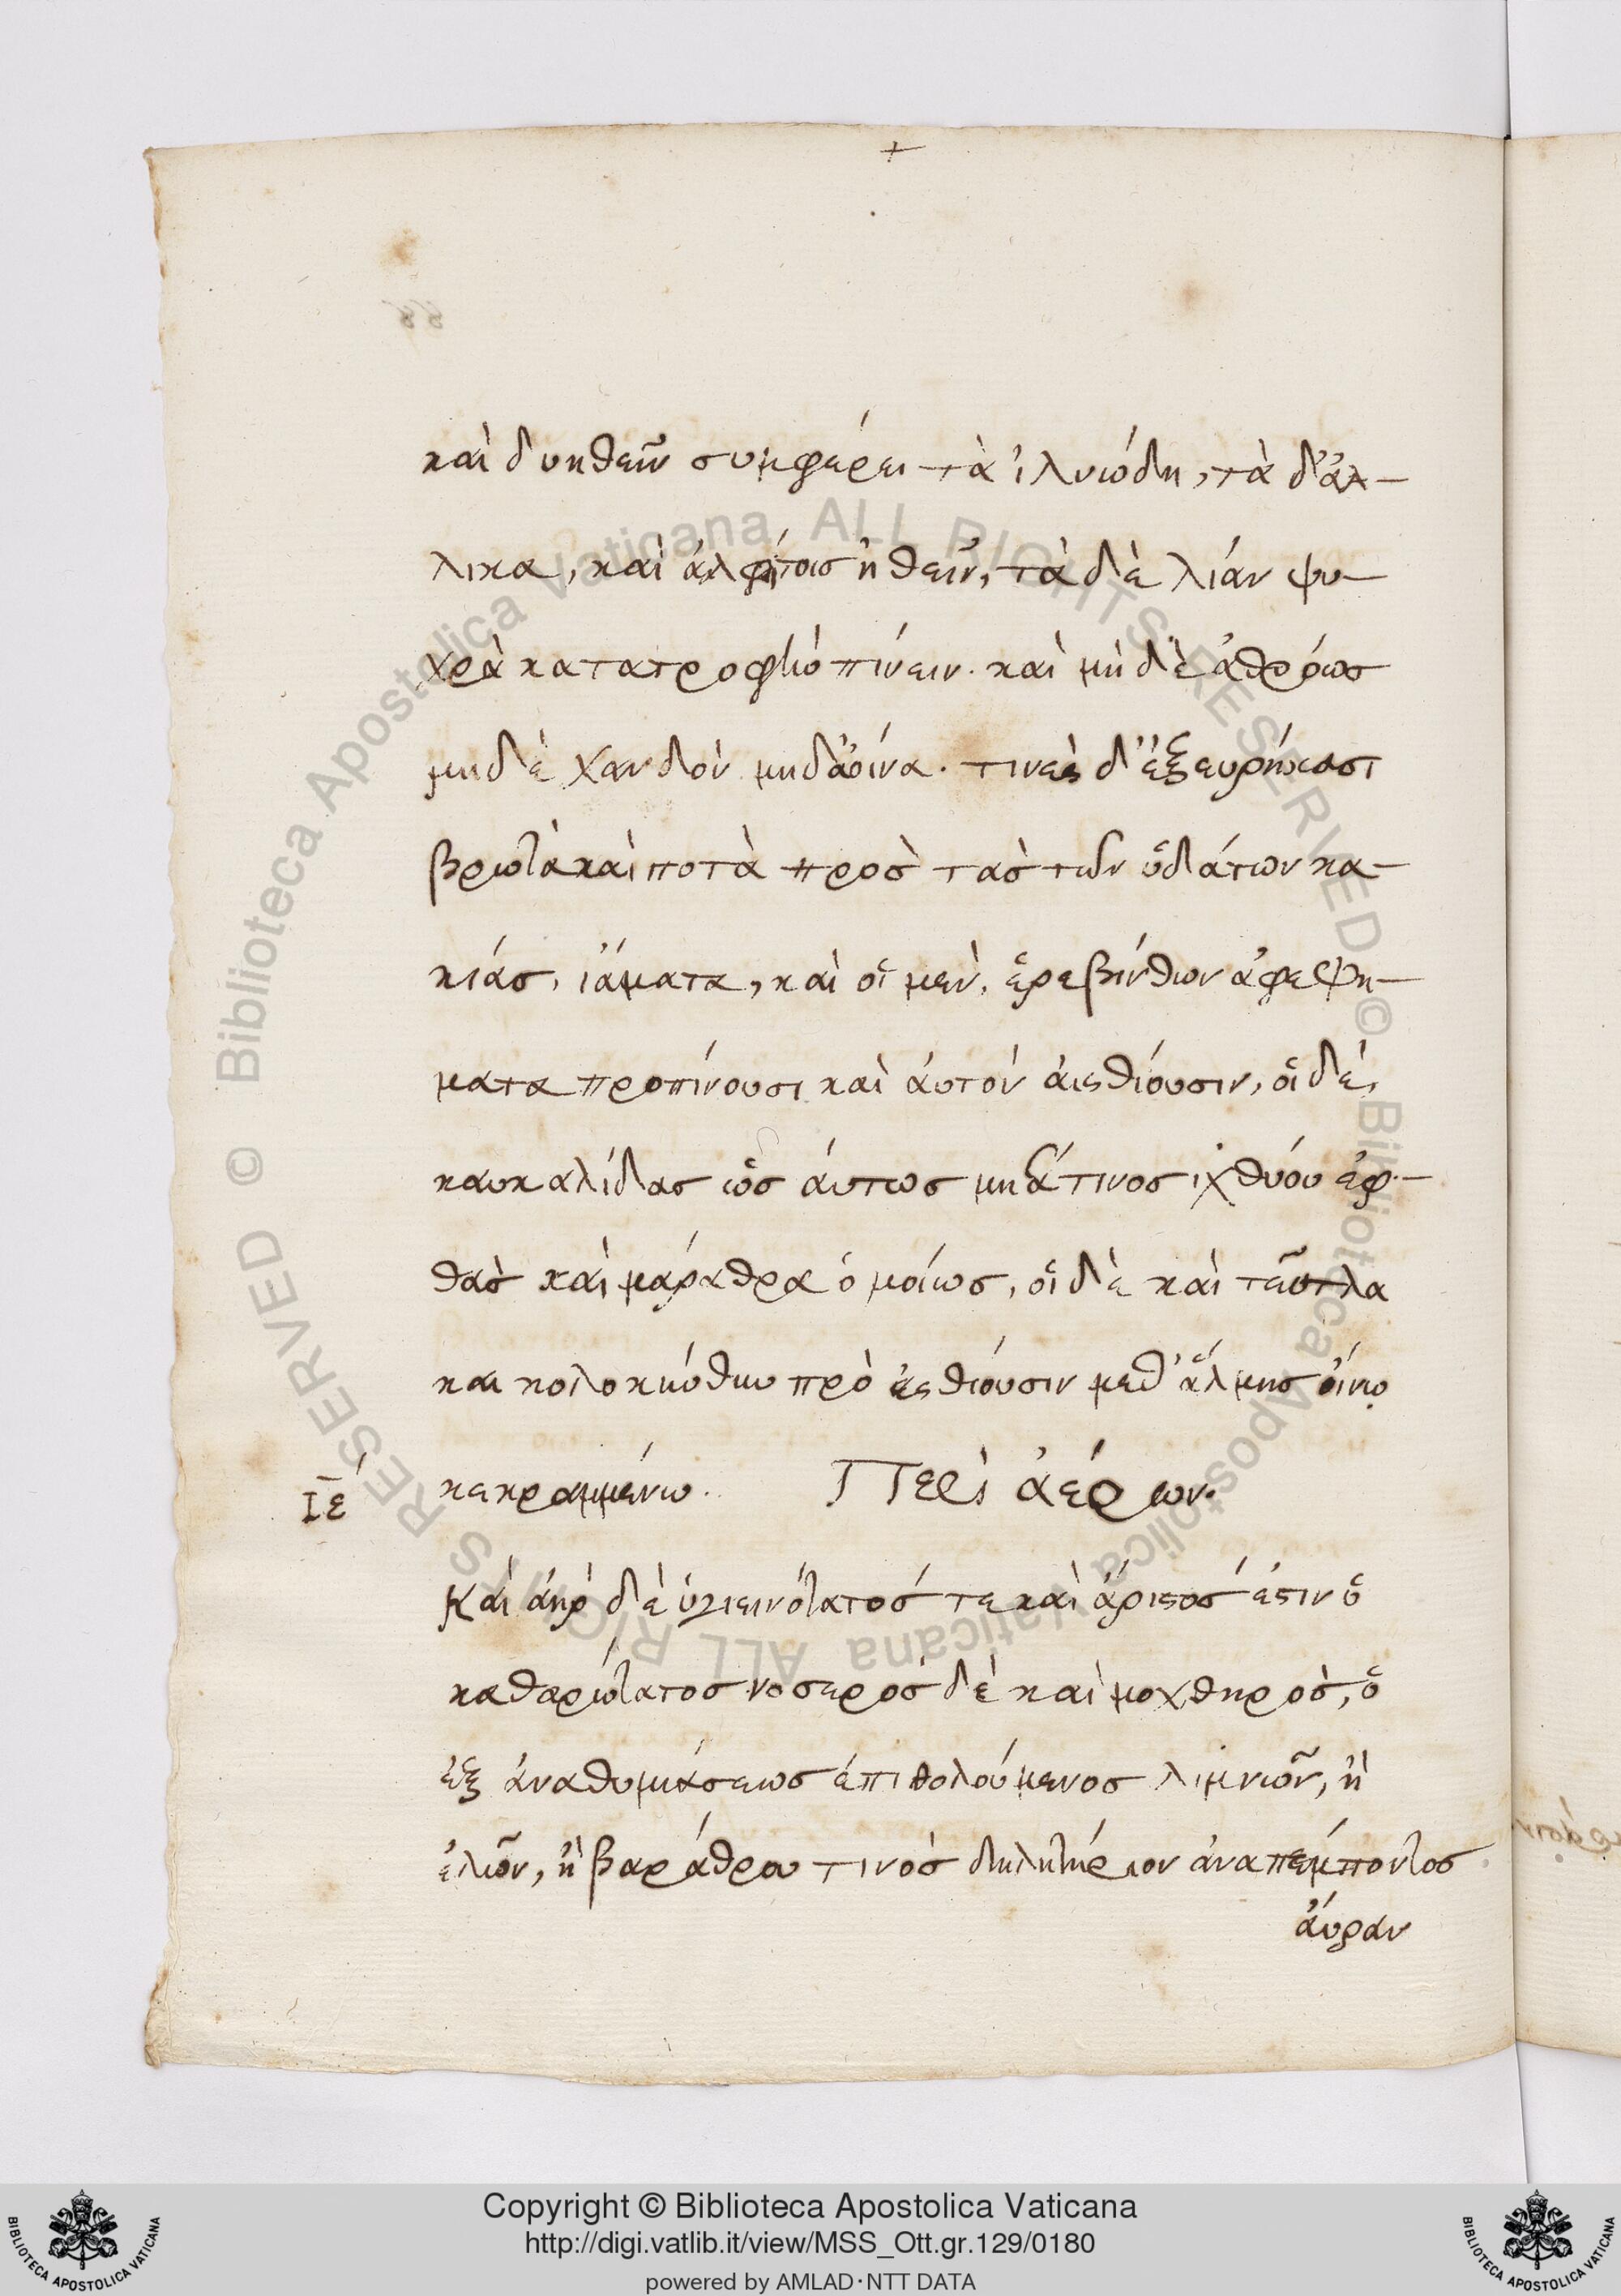 +
καὶ δυηθεῖν συμφέρει τὰ ἰλυώδη, τὰ δ' ἀλ-
λικα, καὶ ἀλφίτοισ ἠθεῖν, τὰ δὲ λίαν ψυ-
χρὰ κατατροφὴν πίνειν. καὶ μὴ δὲ ἀθρόωσ
μηδὲ χανδὸν μηδ' ἄοινα. τινὲς δ' ἐξευρήκασι
βρωτὰ καὶ ποτὰ πρὸσ τὰσ τῶν ὑδάτων κα-
κίασ, ἰάματα, καὶ οἱ μὲν, ἐρεβίνθων ἀφεψή-
ματα προπίνουσι καὶ ἀυτὸν ἀιεσθίουσιν, οἱ δὲ,
καυκαλίδασ ὡσ ἄυτωσ μηδά τινοσ ἰχθύου ἐφ-
θὰσ καὶ μάραθρα ὁμοίωσ, οἱ δὲ καὶ τεῦτλα
και κολοκύνθην προ ἐσθίουσιν μεθ' ἅλμησ ὄινῳ
ΙΕ κεκραμμένω. Περὶ ἀέρων.
Καὶ ἀὴρ δὲ ὑγιεινότατόσ τε καὶ ἄριστόσ ἐστιν ὁ
καθαρώτατοσ νοσερὸσ δὲ καὶ μοχθηρὸσ, ὁ
ἐξ ἀναθυμιάσεωσ ἐπιθολούμενοσ λιμνῶν, ἢ
ἑλῶν, ἢ βαράθρου τινὸσ δηλητήριον ἀναπέμποντοσ
ἄυραν
Copyright © Biblioteca Apostolica Vaticana
http://digi.vatlib.it/view/MSS_Ott.gr.129/0180
powered by AMLAD·NTT DATA
BIBLIOTECA APOSTOLICA VATICANA
BIBLIOTECA APOSTOLICA VATICANA
© Biblioteca Apostolica Vaticana ALL RIGHTS RESERVED
© Biblioteca Apostolica Vaticana ALL RIGHTS RESERVED